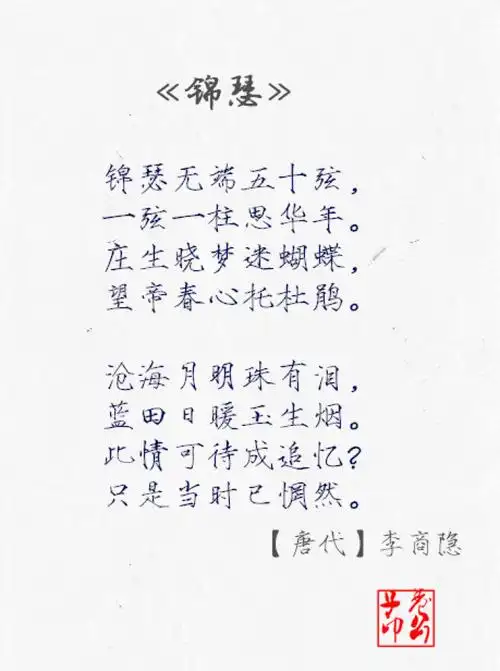 《锦瑟》
锦瑟无端五十弦，
一弦一柱思华年。
庄生晓梦迷蝴蝶，
望帝春心托杜鹃。
沧海月明珠有泪，
蓝田日暖玉生烟。
此情可待成追忆？
只是当时已惘然。
【唐代】李商隐